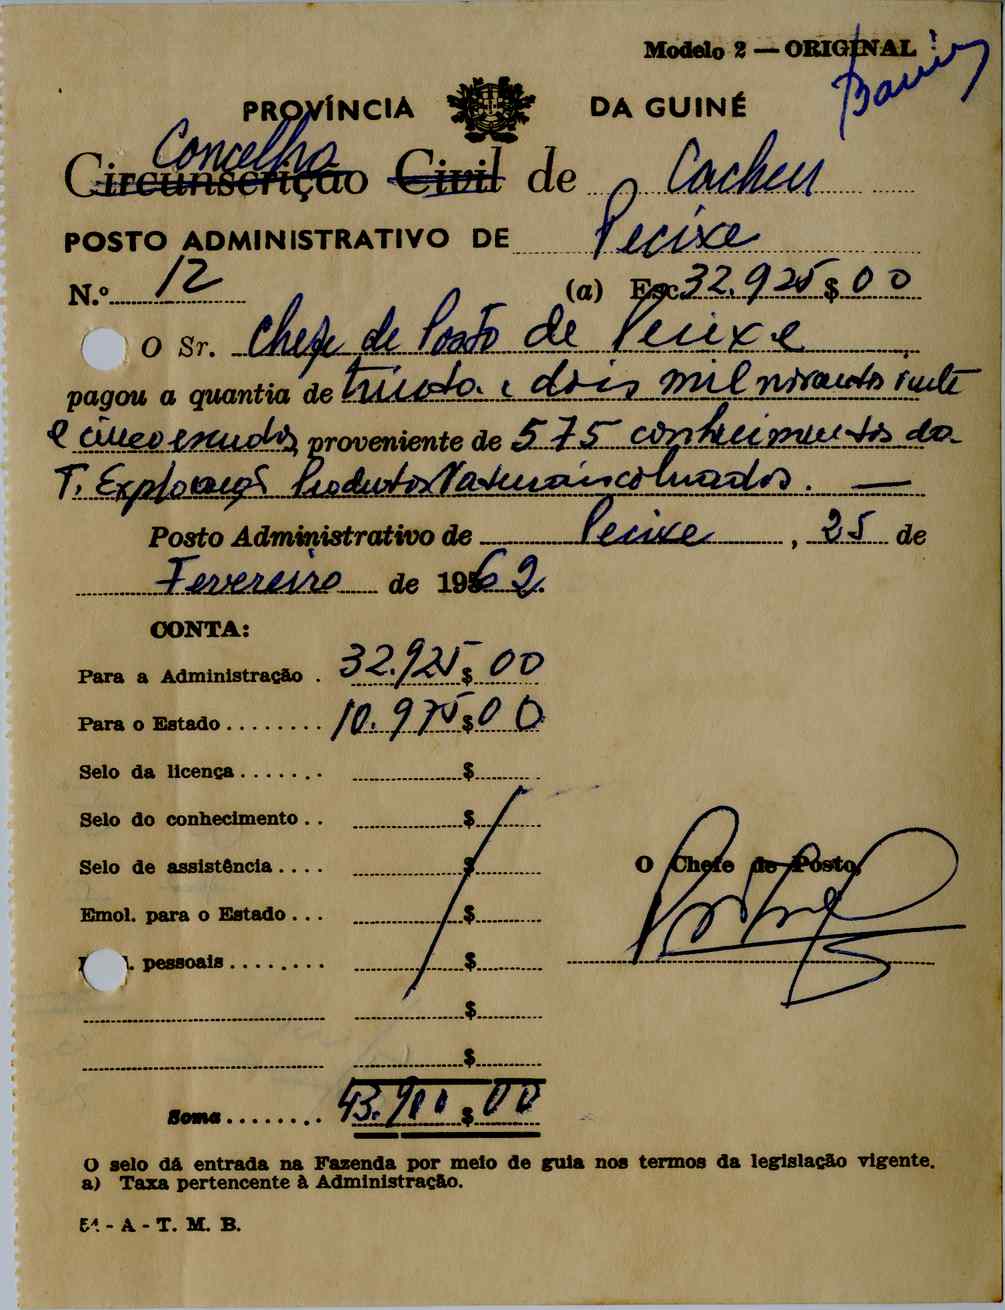 Modelo 2 — ORIGINAL
PROVÍNCIA DA GUINÉ
Concelho
Circunscrição Civil de Cacheu
POSTO ADMINISTRATIVO DE Pecixe
N.º 12 (a) Esc. 32.925$00
O Sr. Chefe de Posto de Pecixe
pagou a quantia de trinta e dois mil novecentos vinte
e cinco escudos, proveniente de 575 conhecimentos da
T. Exploração Produtos Naturais cobrados. —
Posto Administrativo de Pecixe, 25 de
Fevereiro de 1962.
CONTA:
Para a Administração . 32.925$00
Para o Estado ........ 10.975$00
Selo da licença ....... $
Selo do conhecimento . . $
Selo de assistência .... $
O Chefe de Posto,
Emol. para o Estado ... $
pessoais ........ $
$
$
Soma ........ 43.900$00
O selo dá entrada na Fazenda por meio de guia nos termos da legislação vigente.
a) Taxa pertencente à Administração.
- A - T. M. B.